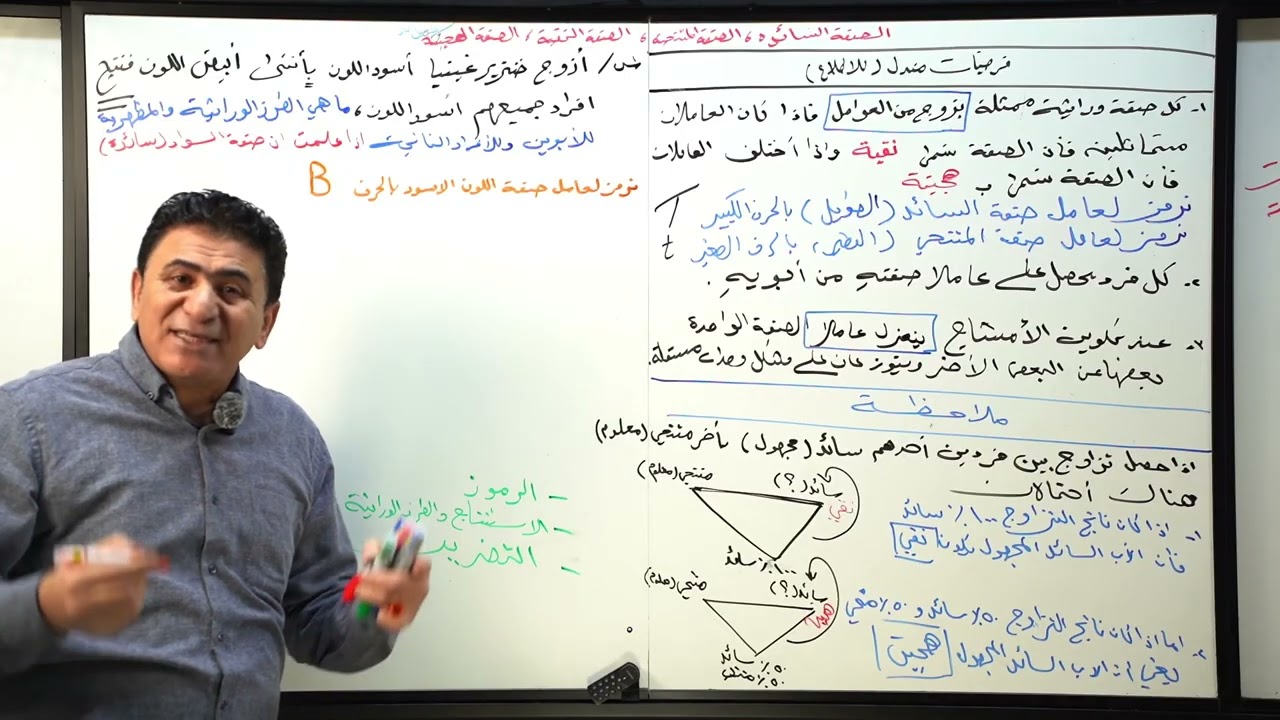 الصفة السائدة، الصفة المتنحية، الصفة النقية، الصفة الهجينة
فرضيات مندل (للاطلاع)
١- كل صفة وراثية ممثلة بزوج من العوامل فاذا كان العاملان
متماثلين فان الصفة نقية واذا اختلف العاملان
فان الصفة ب هجينة
نرمز لعامل صفة السائد (الطويل) بالحرف الكبير T
نرمز لعامل صفة المتنحي بالحرف الصغير t
٢- كل فرد يحصل على عاملا صفته من أبويه.
٣- عند تكوين الأمشاج ينعزل عاملا الصفة الواحدة
بعضها عن البعض الآخر ويتوزعان على شكل وحدات مستقلة.
ملاحظة
اذا حصل تزاوج بين فردين أحدهم سائد (مجهول) والآخر متنحي (معلوم)
هناك أحتمالان
١- اذا كان ناتج التزاوج ١٠٠٪ سائد
فأن الأب السائد المجهول يكون نقي
سائد (؟) متنحي (معلوم)
نقي
١٠٠٪ سائد
٢- اما اذا كان ناتج التزاوج ٥٠٪ سائد و ٥٠٪ متنحي
يعني أن الاب السائد المجهول هجين
سائد (؟) متنحي (معلوم)
هجين
٥٠٪ سائد
٥٠٪ متنحي
س/ أزوج خنزير غينيا أسود اللون بأنثى أبيض اللون فنتج
افراد جميعهم اسود اللون، ما هي الطرز الوراثية والمظهرية
للأبوين وللأفراد الناتجة اذا علمت ان صفة السواد (سائدة)
نرمز لعامل صفة اللون الاسود بالحرف B
- الرموز
- الاستنتاج والطرز الوراثية
- التضريب